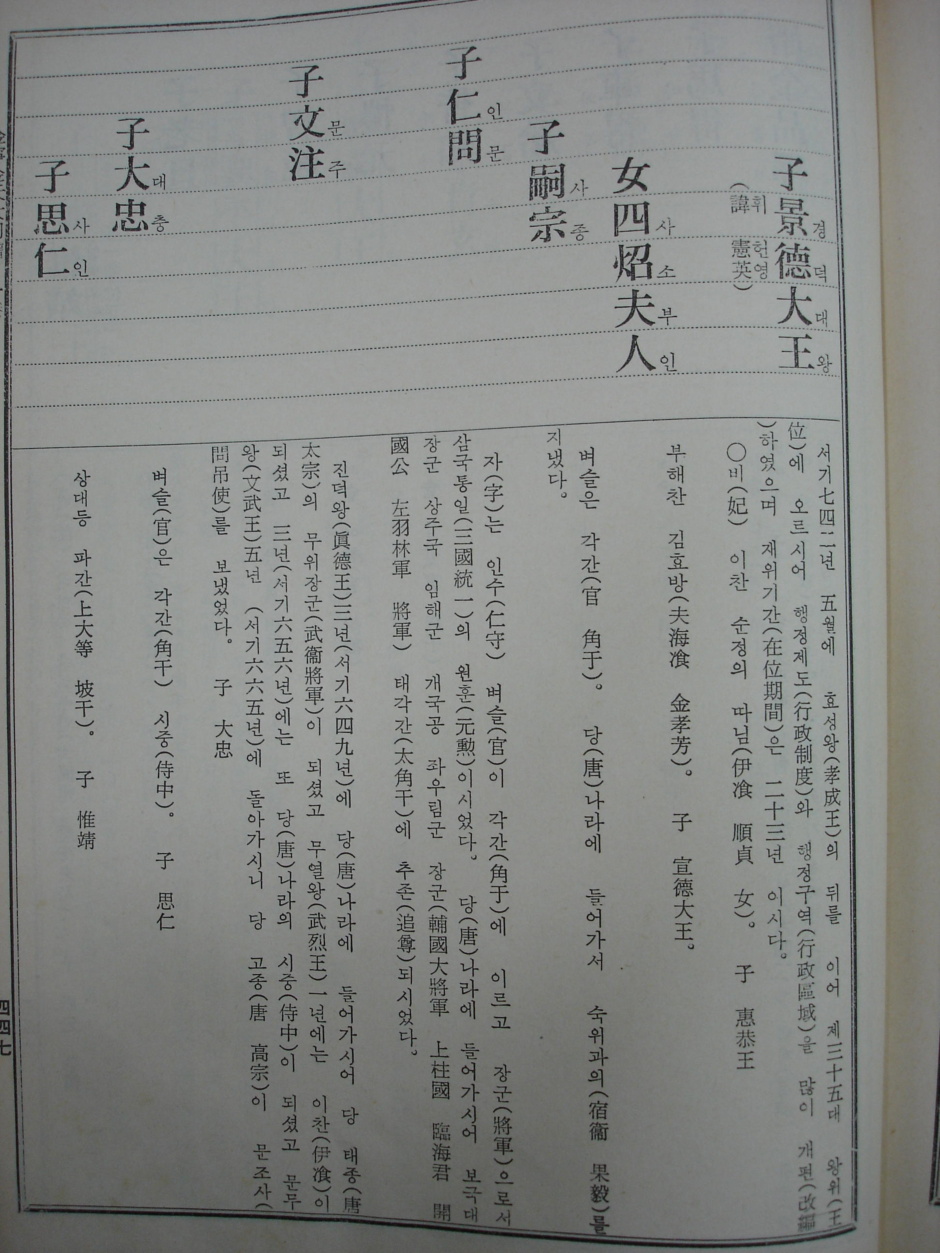 子景德大王
경덕대왕
(諱 憲英)
휘 헌영
女四炤夫人
사소부인
子嗣宗
사종
子仁問
인문
子文注
문주
子大忠
대충
子思仁
사인
서기七四二년 五월에 효성왕(孝成王)의 뒤를 이어 제三十五대 왕위(王
位)에 오르시어 행정제도(行政制度)와 행정구역(行政區域)을 많이 개편(改編
)하였으며 재위기간(在位期間)은 二十三년 이시다.
○비(妃) 이찬 순정의 따님(伊飡 順貞 女). 子 惠恭王
부해찬 김효방(夫海飡 金孝芳). 子 宣德大王.
벼슬은 각간(官 角干). 당(唐)나라에 들어가서 숙위과의(宿衞 果毅)를
지냈다.
자(字)는 인수(仁守) 벼슬(官)이 각간(角干)에 이르고 장군(將軍)으로서
삼국통일(三國統一)의 원훈(元勲)이시었다. 당(唐)나라에 들어가시어 보국대
장군 상주국 임해군 개국공 좌우림군 장군(輔國大將軍 上柱國 臨海君 開
國公 左羽林軍 將軍) 태각간(太角干)에 추존(追尊)되시었다.
진덕왕(眞德王)三년(서기六四九년)에 당(唐)나라에 들어가시어 당 태종(唐
太宗)의 무위장군(武衞將軍)이 되셨고 무열왕(武烈王)一년에는 이찬(伊飡)이
되셨고 三년(서기六五六년)에는 또 당(唐)나라의 시중(侍中)이 되셨고 문무
왕(文武王)五년 (서기六六五년)에 돌아가시니 당 고종(唐 高宗)이 문조사(
問吊使)를 보냈었다. 子 大忠
벼슬(官)은 각간(角干) 시중(侍中). 子 思仁
상대등 파간(上大等 坡干). 子 惟靖
四四七